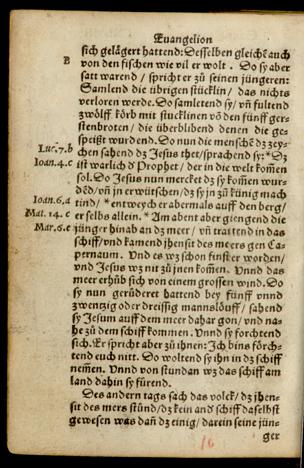 Euangelion
sich gelägert hattend: Desselben gleichẽ auch
B
von den fischen wie vil er wolt. Do sy aber
satt warend / spricht er zů seinen jüngeren:
Samlend die übrigen stücklin / das nichts
verloren werde. Do samletend sy/ vñ fultend
zwölff körb mit stucklinen võ den fünff ger-
stenbroten/ die überblibend denen die ge-
speißt wurdend. Do nun die menschẽ dz zey-
Luc.7.b
chen sahend dz Jesus thet/sprachend sy:* Dz
Ioan.4.c
ist warlich ď Prophet/ der in die welt kom̃en
sol. Do Jesus nun mercket dz sy kom̃en wur-
dẽd/ vñ jn erwütschen/dz sy jn zů künig mach
Ioan.6.a
tind/* entweych er abermals auff den berg/
Mat. 14. c
er selbs allein. * Am abent aber giengend die
Mar.6.e
jünger hinab an dz meer/ vñ trattend in das
schiff/vnd kamend jhensit des meers gen Ca-
pernaum. Vnd es wz schon finster worden/
vnd Jesus wz nit zů jnen kom̃en. Vnnd das
meer erhůb sich von einem grossen wind. Do
sy nun gerůderet hattend bey fünff vnnd
zwentzig oder dreissig mannslöuff/ sahend
sy Jesum auff dem meer dahar gon/ vnd na-
he zů dem schiff kommen. Vnnd sy forchtend
sich. Er spricht aber zů ihnen: Ich bins förch-
tend euch nitt. Do woltend sy ihn in dz schiff
nem̃en. Vnnd von stundan wz das schiff am
land dahin sy fůrend.
Des andern tags sach das volck/ dz jhen-
sit des mers stůnd/ dz kein and schiff daselbst
gewesen was dañ dz einig/ darein seine jün-
ger
16